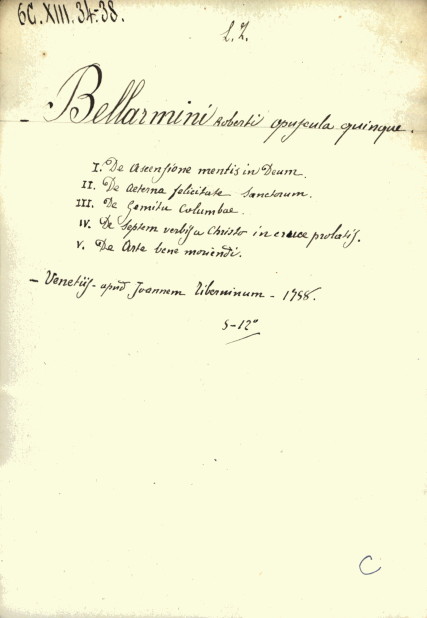 6C. XIII. 34-38.
L. Z.
- Bellarmini Roberti opuscula quinque.
I. De Ascensione mentis in Deum.
II. De Aeterna felicitate Sanctorum.
III. De Gemitu Columbae.
IV. De Septem verbis a Christo in cruce prolatis.
V. De Arte bene moriendi.
- Venetiis - apud Joannem Tiberninum - 1798.
5-12°
C